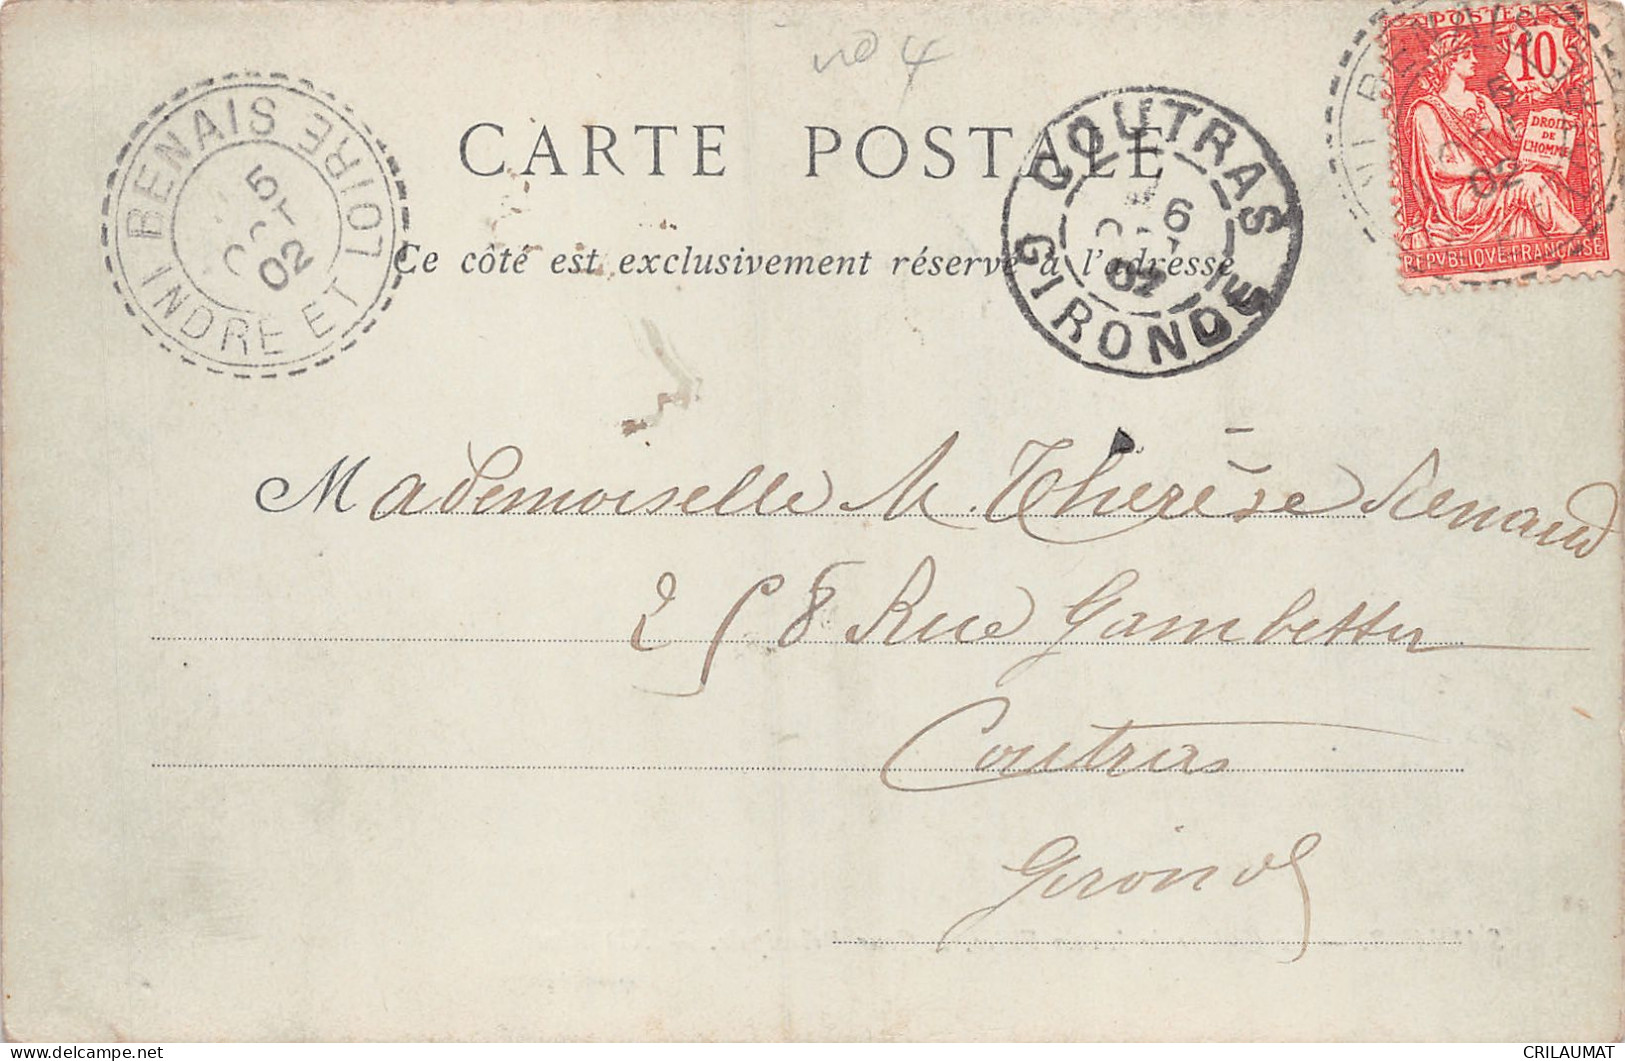 no 4
CARTE POSTALE
Ce côté est exclusivement réservé à l'adresse
BENAIS
5
OCT
02
INDRE ET LOIRE
COUTRAS
6
OCT
02
GIRONDE
POSTES
10
DROITS
DE
L'HOMME
REPVBLIQVE FRANÇAISE
BENAIS
5
OCT
02
Mademoiselle M. Therèse Renaud
258 Rue Gambetta
Coutras
Gironde
CRILAUMAT